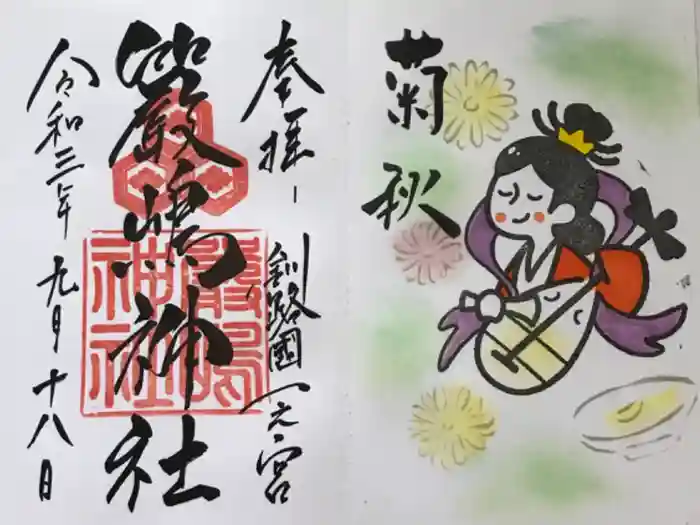 菊
秋
奉拝
釧路國一之宮
厳嶋神社
厳嶋
神社
令和三年
九月十八日